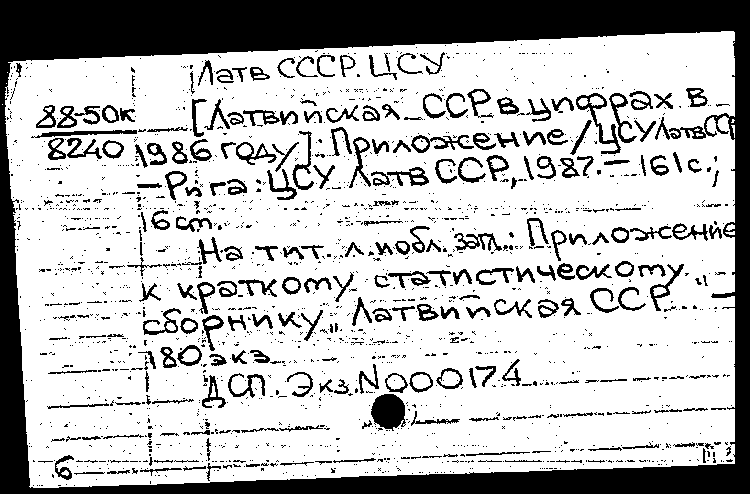 Латв СССР. ЦСУ
88-50к
8240
[Латвийская ССР в цифрах в
1986 году]: Приложение / ЦСУ Латв ССР
— Рига: ЦСУ Латв ССР, 1987. — 161 с.;
16 см.
На тит. л. и обл. загл.: Приложение
к краткому статистическому
сборнику „Латвийская ССР... —
180 экз.
ДСП. Экз. N000174
б